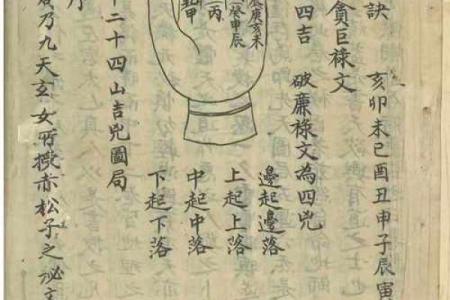 訣 亥卯未巳酉丑申子辰寅
貪巨祿文
四吉 破廉祿文為四兇
邊起邊落
上起上落
中起中落
下起下落
庚亥未
癸甲辰
丙
甲
二十四山吉兇圖局
乃九天玄女所授赤松子之秘